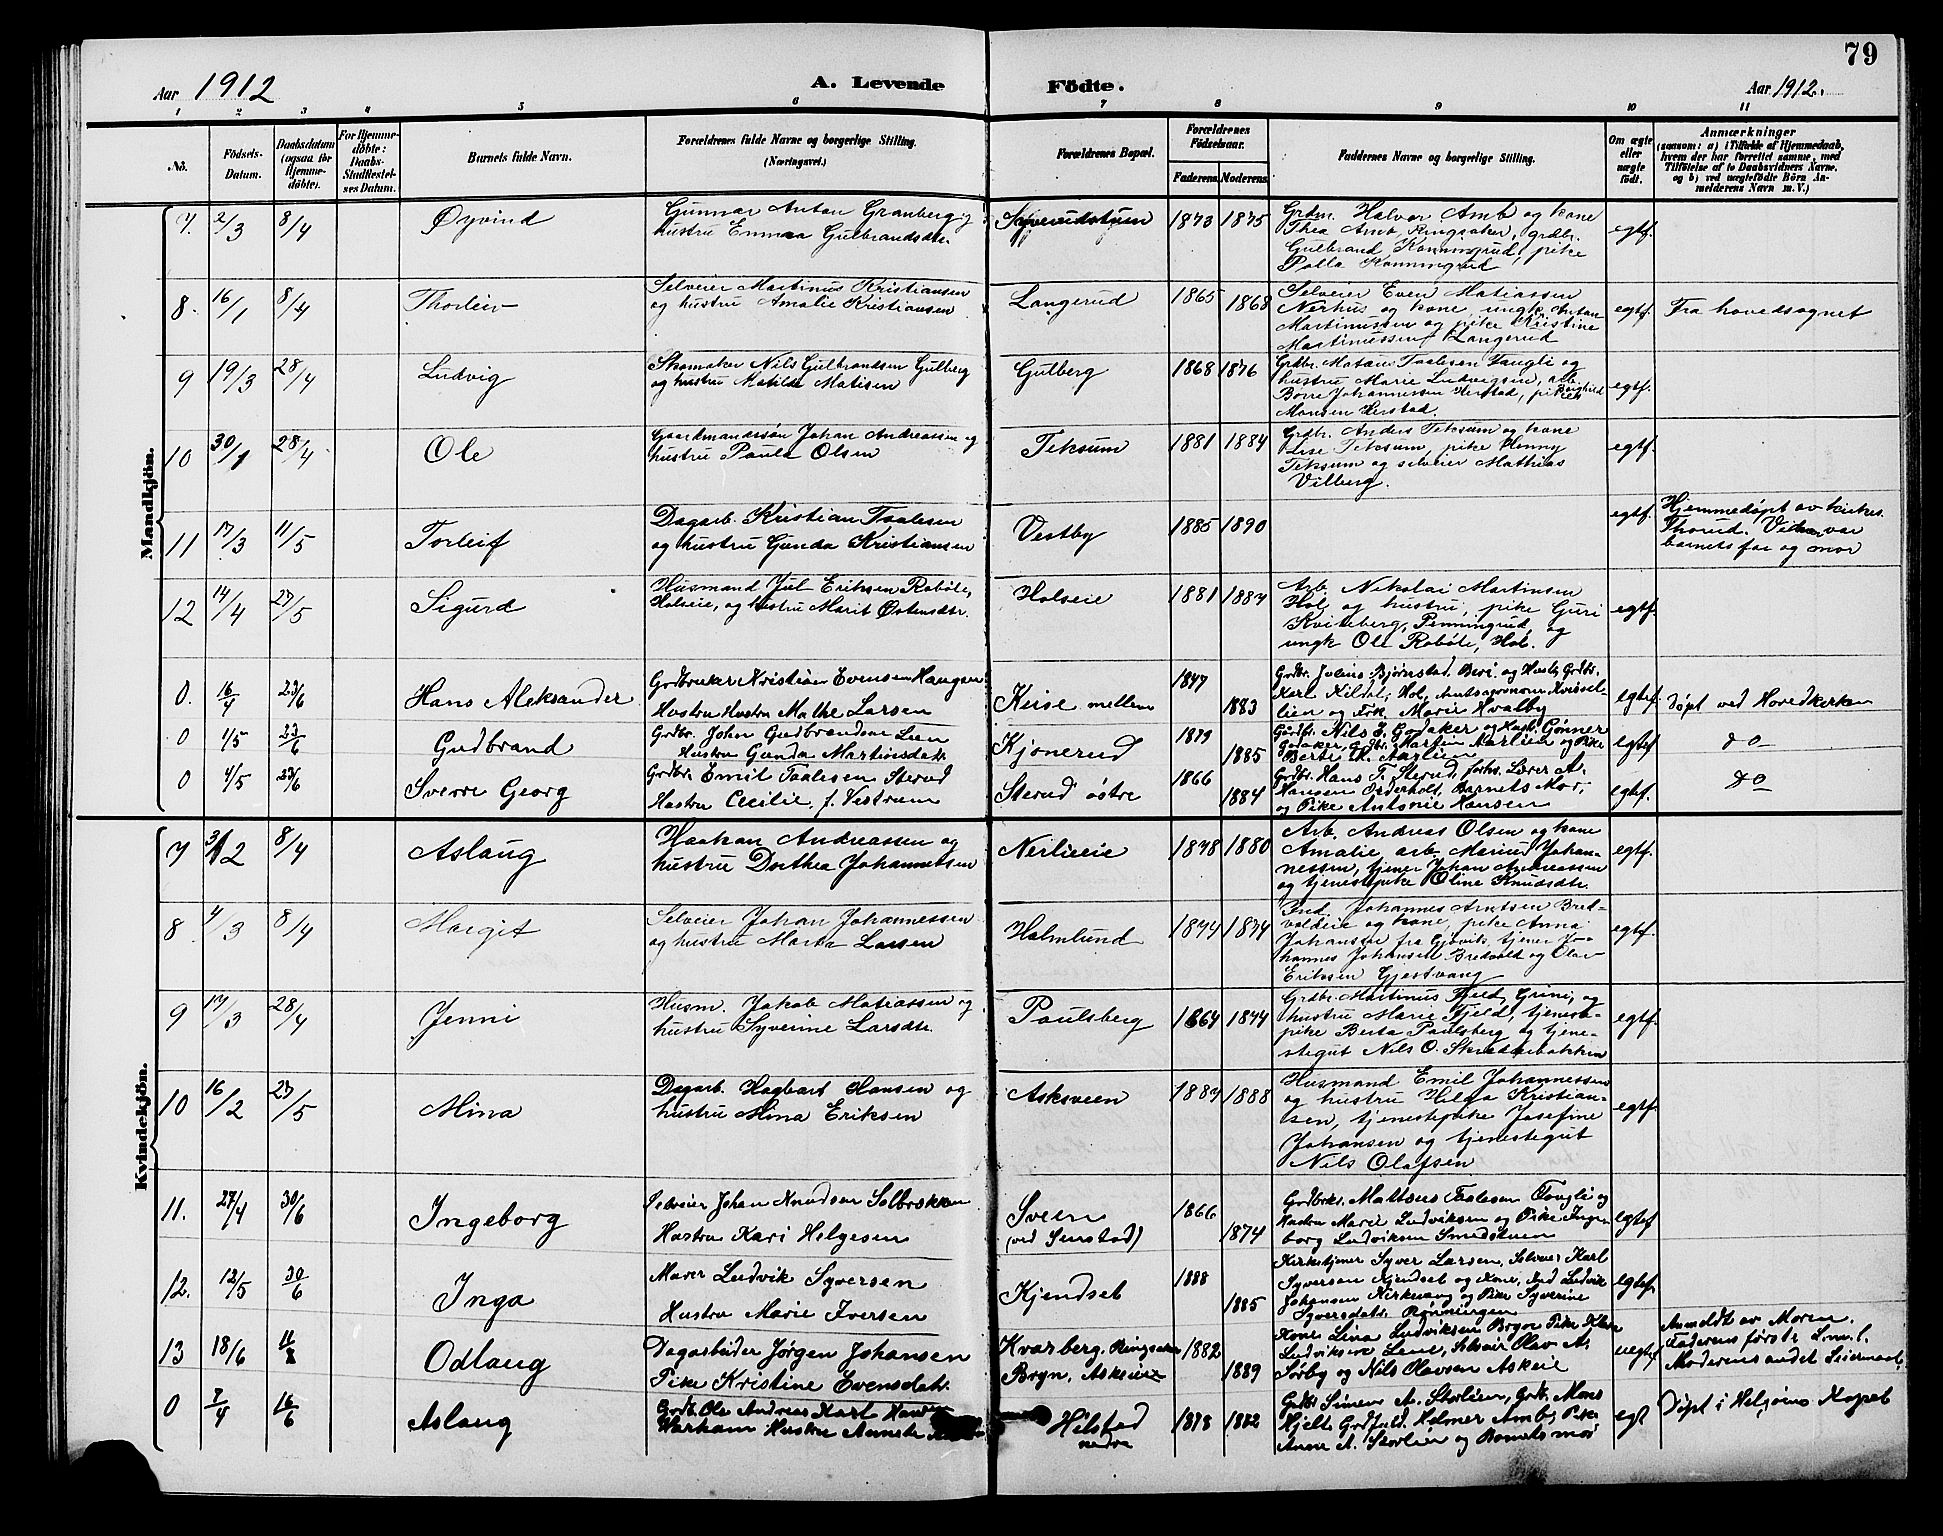 79
Aar 1912
A. Levende Födte.
Aar 1912.
1 2 3 4 5 6 7 8 9 10 11
No.
Födsels-Datum.
Daabsdatum (ogsaa for Hjemmedöbte).
For Hjemmedöbte: Daabs-Stadfestelses Datum.
Barnets fulde Navn.
Forældrenes fulde Navne og borgerlige Stilling. (Næringsvei.)
Forældrenes Bopæl.
Forældrenes Födselsaar.
Faderens. Moderens.
Faddernes Navne og borgerlige Stilling.
Om ægte eller uægte födt.
Anmærkninger
(saasom: a) i Tilfælde af Hjemmedaab, hvem der har forrettet samme, med Tilföielse af to Daabsvidners Navne, og b) ved uægtefödte Börn Anmelderens Navn m. V.)
Mandkjön.
7. 2/3 8/4 Øyvind
Gunnar Anton Granberg og
hustru Emma Gulbrandsdtr.
1873 1875
Grdm. Halvor Amb og kone
Thea Amb, Ringsaker, grdbr.
Gulbrand Konningrud, pike
Palla Konningrud
egtf.
8. 16/1 8/4 Thorleiv
Selveier Martinus Kristiansen
og hustru Amalie Kristiansen
Langerud 1865 1868
Selveier Even Matiassen
Nerhus og kone, ungk. Anton
Martinussen og pike Kristine
Martinussen, Langerud
egtf. Fra hovedsognet
9 19/3 28/4 Ludvig
Skomaker Nils Gulbrandsen Gulberg
og hustru Matilde Matisen
Gulberg 1868 1876
Grdbr. Taalesen Haugli og
hustru Marie Ludvigsen, arb.
Børre Johannessen Herstad, pike Borghild
Monsen Herstad.
egtf.
10 30/1 28/4 Ole
Gaardmandssøn Johan Andreassen og
hustru Paula Olsen
Teksum 1881 1884
Grdbr. Anders Teksum og kone
Lise Teksum, pike Henny
Teksum og selveier Mathias
Vilberg.
egtf.
11 17/3 11/5 Torleif
Dagarb. Kristian Taalesen
og hustru Gunda Kristiansen
Vestby 1885 1890
egtf.
Hjemmedøpt av kirkes.
Thorud. Vidner var
barnets far og mor
12 14/4 27/5 Sigurd
Husmand Jul Eriksen Robøle,
Holseie, og hustru Marit Østensdtr.
Holseie 1881 1887
Arb. Nikolai Martinsen
Hol og hustru, pike Guri
Kviteberg, Penningrud, og
ungk Ole Robøle, Hol.
egtf.
0. 16/4 23/6 Hans Aleksander
Grdbruker Kristian Evensen Haugsen
Hustru Mathe Larsen
Keise mellem 1847 1883
Grdbr. Julius Bjørnstad, Beri og Hustr. Grdbr.
Karl Kildal, Hol, Amtsagronom Kvissel-
lien og Frk. Marie Hvalby
egtef. Døpt ved Hovedkirken
0 1/5 23/6 Gudbrand
Grdbr. John Gudbrandsen Lien
Hustru Gunda Martinsdatr.
Kjønerud 1879 1885
Gaardbr. Nils E. Godaker og Hust. Gønner
Godaker, grdbr. Martin Aarlien og Pike
Berte M. Aarlien
egtef do
0 4/5 23/6 Sverre Georg
Grdbr. Emil Taalesen Sterud
Hustru Cecilie, f. Vestrum
Sterud østre 1866 1884
Grdbr. Hans T. Sterud, forhv. Lærer A.
Hansen Orderholt, Barnets Mor,
og Pike Antonie Hansen
egtf. do
Kvindekjön.
7 31/2 8/4 Aslaug
Haakon Andreassen og
hustru Dorthea Johannessen
Nerlieeie 1878 1880
Arb. Andreas Olsen og kone
Amalie, arb. Marius Johan-
nessen, tjener Johan Andreassen
og tjenestepike Oline Knudsdtr.
egtf.
8. 4/3 8/4 Margit
Selveier Johan Johannessen
og hustru Marta Larsen
Holmlund 1874 1874
Ind. Johannes Arntsen Bred-
voldeie og kone, pike Anna
Johansen fra Gjøvik, tjener Jo-
hannes Johansen Bredvold og Olav
Eriksen Gjestvang
egtf.
9 17/3 28/4 Jenni
Husm. Jakob Matiassen og
hustru Syverine Larsdtr.
Paulsberg 1864 1874
Grdbr. Martinus Fjeld, Grini, og
hustru Marie Fjeld, tjeneste-
pike Berta Paulsberg og tjene-
stegut Nils O. Skredderbakken
egtf.
10 16/2 27/5 Mina
Dagarb. Hagbart Hansen og
hustru Mina Eriksen
Asksveen 1887 1888
Husmand Emil Johannessen
og hustru Helga Kristian-
sen, tjenestepike Josefine
Johansen og tjenestegut
Nils Olafsen
egtf.
11. 27/4 30/6 Ingeborg
Selveier Johan Knudsen Solbrækken
Hustru Kari Helgesen
Sveen
(ved Sinstad) 1866 1874
Grdbrkr. Mattæus Taalesen Fougli og
Hustru Marie Ludviksen og Pike Inge-
borg Ludviksen Smedstuen
egtef
12. 12/5 30/6 Inga
Maler Ludvik Syversen
Hustru Marie Iversen
Kjendset 1888 1885
Kirketjener Syver Larsen, Selveier Karl
Syversen Kjendset og Kone, Ind Ludvik
Johansen Kirkevang og Pike Syverine
Syversdatr. Rønningen
egtef.
13 18/6 Odlaug
Dagarbeider Jørgen Johansen
Pike Kristine Evensdatr.
Kvarberg, Ringsaker
Bryn, Askeie 1882 1889
Kone Lina Ludviksen Bryn Pike Klara
Ludviksen Lene, Selveier Olav A.
Sørby og Nils Olavsen Askeie
uegtef
Anmeldt av Moren.
Faderens første Lmul.
Moderens andet Leiermaal.
0 7/4 16/6 Aslaug
Grdb. Ole Andreas Karl
Warham Hustru Annete
Hilstad
nedre 1878 1882
Gdbr. Simen A. Storlien, Grdb. Mons
Hjelt, Grdfold. Helmer Amby Pike
Anne A. Storlien og Barnets mor
egt Døpt i Helgøens Kapel